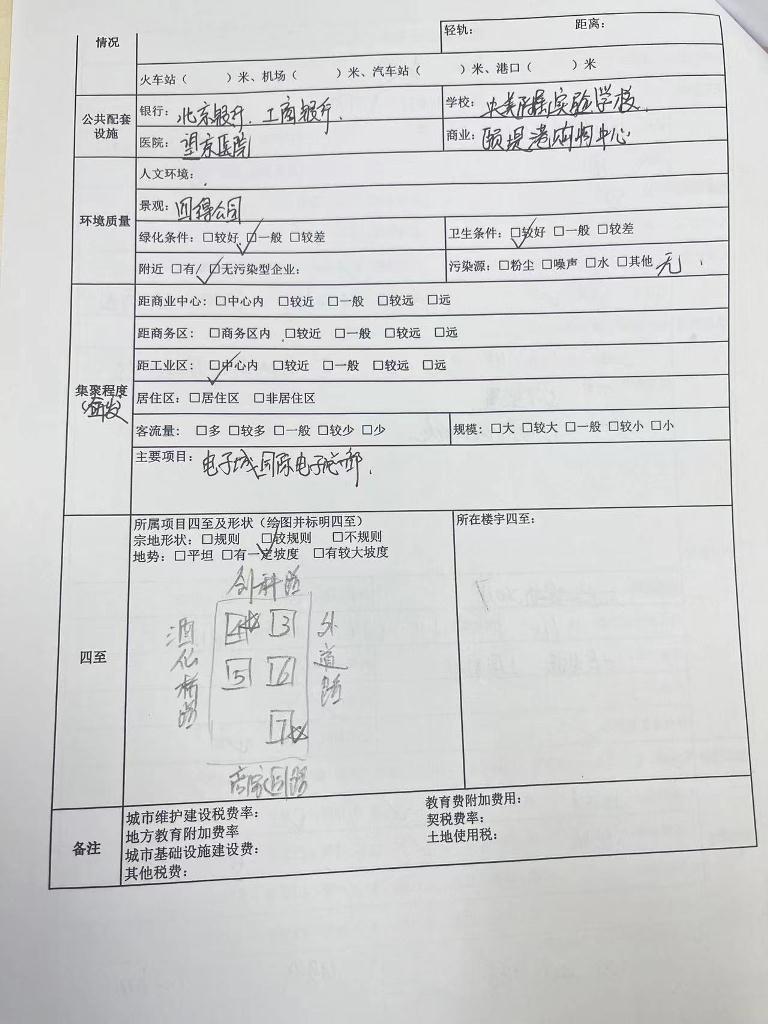 情况
轻轨： 距离：
火车站（ ）米、机场（ ）米、汽车站（ ）米、港口（ ）米
公共配套设施
银行：北京银行．工商银行．
学校： 实验学校．
医院：望京医院
商业：颐堤港购物中心
环境质量
人文环境：
景观： 公园
绿化条件：□较好 □一般 □较差
卫生条件：□较好 □一般 □较差
附近 □有/ □无污染型企业：
污染源：□粉尘 □噪声 □水 □其他 无．
集聚程度
距商业中心：□中心内 □较近 □一般 □较远 □远
距商务区： □商务区内 □较近 □一般 □较远 □远
距工业区： □中心内 □较近 □一般 □较远 □远
居住区：□居住区 □非居住区
客流量： □多 □较多 □一般 □较少 □少
规模：□大 □较大 □一般 □较小 □小
主要项目：电子城国际电子总部．
四至
所属项目四至及形状（绘图并标明四至）
宗地形状：□规则 □较规则 □不规则
地势：□平坦 □有一定坡度 □有较大坡度
所在楼宇四至：
创科路
酒仙桥路
4 3
5 6
7
外道路
备注
城市维护建设税费率：
地方教育附加费率
城市基础设施建设费：
其他税费：
教育费附加费用：
契税费率：
土地使用税：